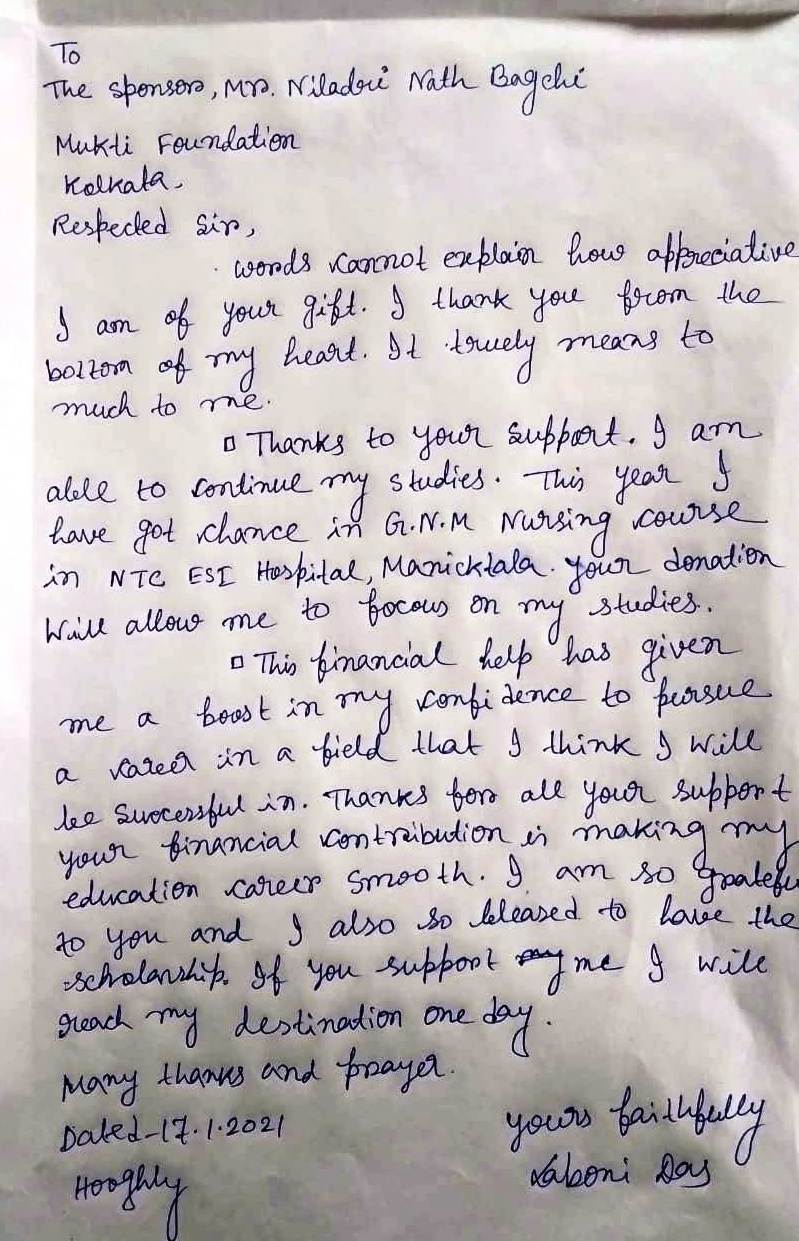 To
The sponsor, Mr. Niladri Nath Bagchi
Mukti Foundation
Kolkata.
Respected Sir,
words cannot explain how appreciative
I am of your gift. I thank you from the
bottom of my heart. It truely means to
much to me.
Thanks to your support. I am
able to continue my studies. This year I
have got chance in G.N.M Nursing course
in NTC ESI Hospital, Manicktala. your donation
will allow me to focous on my studies.
This financial help has given
me a boost in my confidence to persue
a career in a field that I think I will
be successful in. Thanks for all your support
your financial contribution is making my
education career smooth. I am so grateful
to you and I also so blessed to have the
scholarship. If you support my me I will
reach my destination one day.
Many thanks and prayer.
Dated-17.1.2021
yours faithfully
Hooghly
Laboni Das